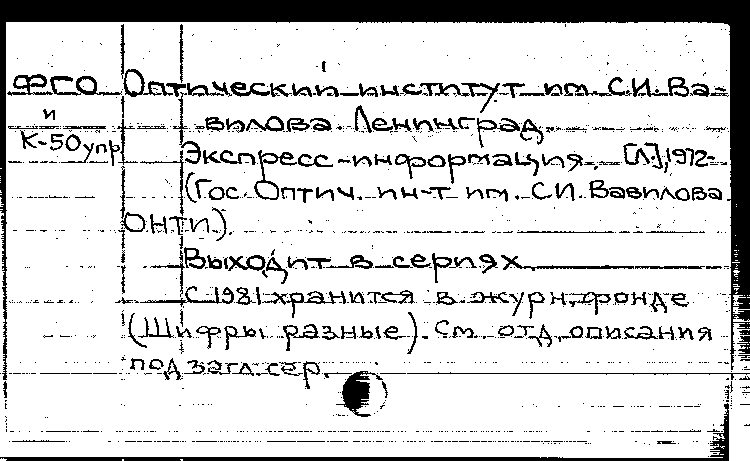 ФГО Оптический институт им. С.И. Ва-
и
вилова. Ленинград.
К-50упр
Экспресс-информация. [Л.], 1972-
(Гос. Оптич. ин-т им. С.И. Вавилова.
ОНТИ).
Выходит в сериях.
С 1981 хранится в журн. фонде
(Шифры разные). См. отд. описания
под загл. сер.